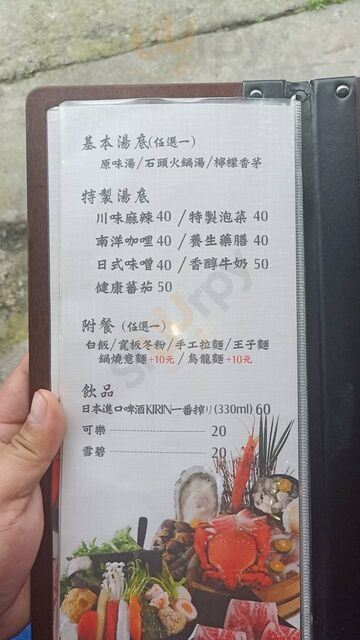 基本湯底(任選一)
原味湯/石頭火鍋湯/檸檬香茅
特製湯底
川味麻辣 40 / 特製泡菜 40
南洋咖哩 40 / 養生藥膳 40
日式味噌 40 / 香醇牛奶 50
健康蕃茄 50
附餐 (任選一)
白飯/寬板冬粉/手工拉麵/王子麵
鍋燒意麵+10元 / 烏龍麵+10元
飲品
日本進口啤酒KIRIN一番搾り(330ml) 60
可樂 20
雪碧 20